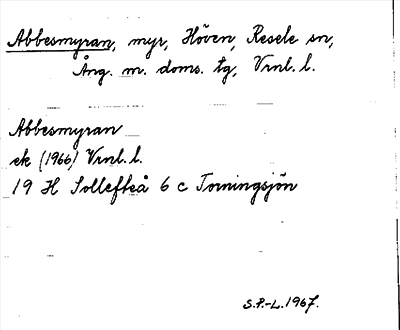 Abbesmyran, myr, Höven, Resele sn,
Ång. m. doms. tg, Vrnl. l.
Abbesmyran
ek (1966) Vrnl. l.
19 H Sollefteå 6 c Torningsjön
S.P.-L. 1967.